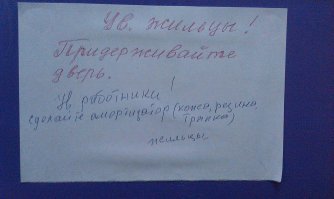 Ув. жильцы!
Придерживайте
дверь.
Ув работники!
сделайте амортизатор (кожа, резина,
тряпка)
жильцы